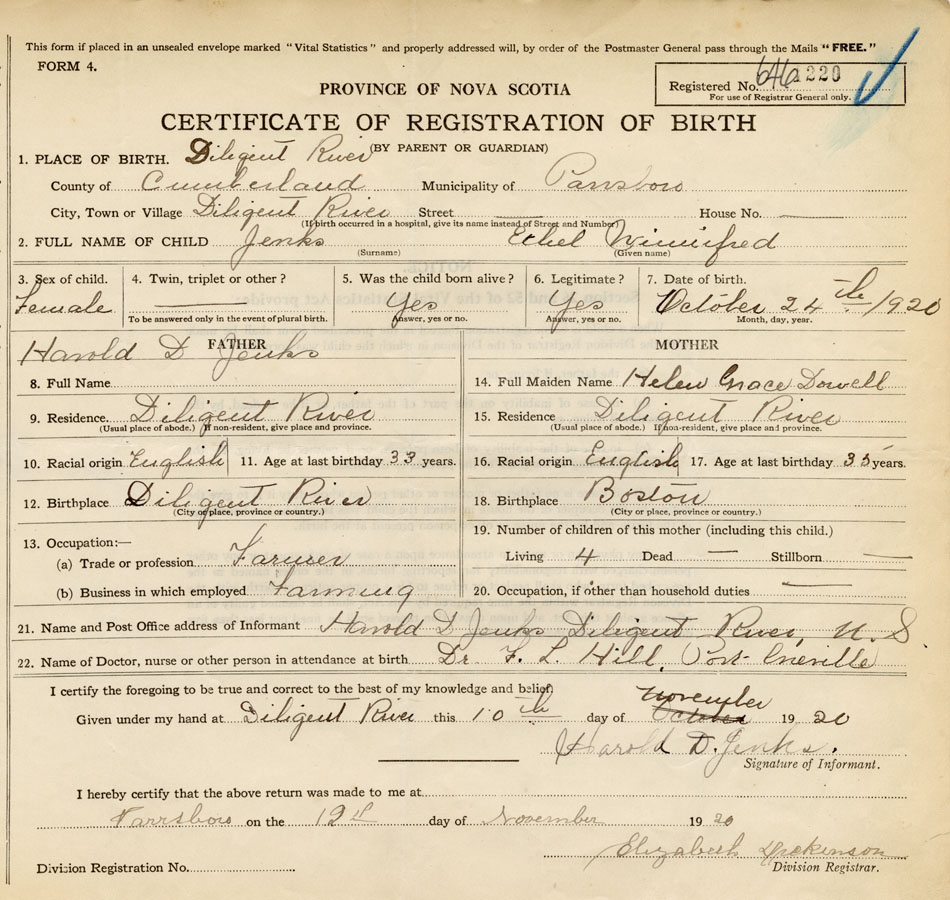 This form if placed in an unsealed envelope marked "Vital Statistics" and properly addressed will, by order of the Postmaster General pass through the Mails "FREE."
FORM 4.
Registered No. 220
For use of Registrar General only.
PROVINCE OF NOVA SCOTIA
CERTIFICATE OF REGISTRATION OF BIRTH
(BY PARENT OR GUARDIAN)
1. PLACE OF BIRTH. Diligent River
County of Cumberland Municipality of Parrsboro
City, Town or Village Diligent River Street House No.
(If birth occurred in a hospital, give its name instead of Street and Number)
2. FULL NAME OF CHILD Jenks Ethel Winnifred
(Surname) (Given name)
3. Sex of child. 4. Twin, triplet or other? 5. Was the child born alive? 6. Legitimate? 7. Date of birth.
Female Yes Yes October 24th /1920
To be answered only in the event of plural birth. Answer, yes or no. Answer, yes or no. Month, day, year.
FATHER MOTHER
Harold D Jenks
8. Full Name 14. Full Maiden Name Helen Grace Dowell
9. Residence. Diligent River 15. Residence Diligent River
(Usual place of abode.) If non-resident, give place and province. (Usual place of abode.) If non-resident, give place and province.
10. Racial origin English 11. Age at last birthday 33 years. 16. Racial origin English 17. Age at last birthday 35 years.
12. Birthplace Diligent River 18. Birthplace Boston
(City or place, province or country.) (City or place, province or country.)
13. Occupation:— 19. Number of children of this mother (including this child.)
(a) Trade or profession Farmer Living 4 Dead — Stillborn —
(b) Business in which employed Farming 20. Occupation, if other than household duties —
21. Name and Post Office address of Informant Harold D Jenks Diligent River, N. S
22. Name of Doctor, nurse or other person in attendance at birth Dr. F. L. Hill, Port Greville
I certify the foregoing to be true and correct to the best of my knowledge and belief.
November
Given under my hand at Diligent River this 10th day of October 1920
Harold D. Jenks.
Signature of Informant.
I hereby certify that the above return was made to me at
Parrsboro on the 12th day of November 1920
Elizabeth Dickinson
Division Registration No. Division Registrar.